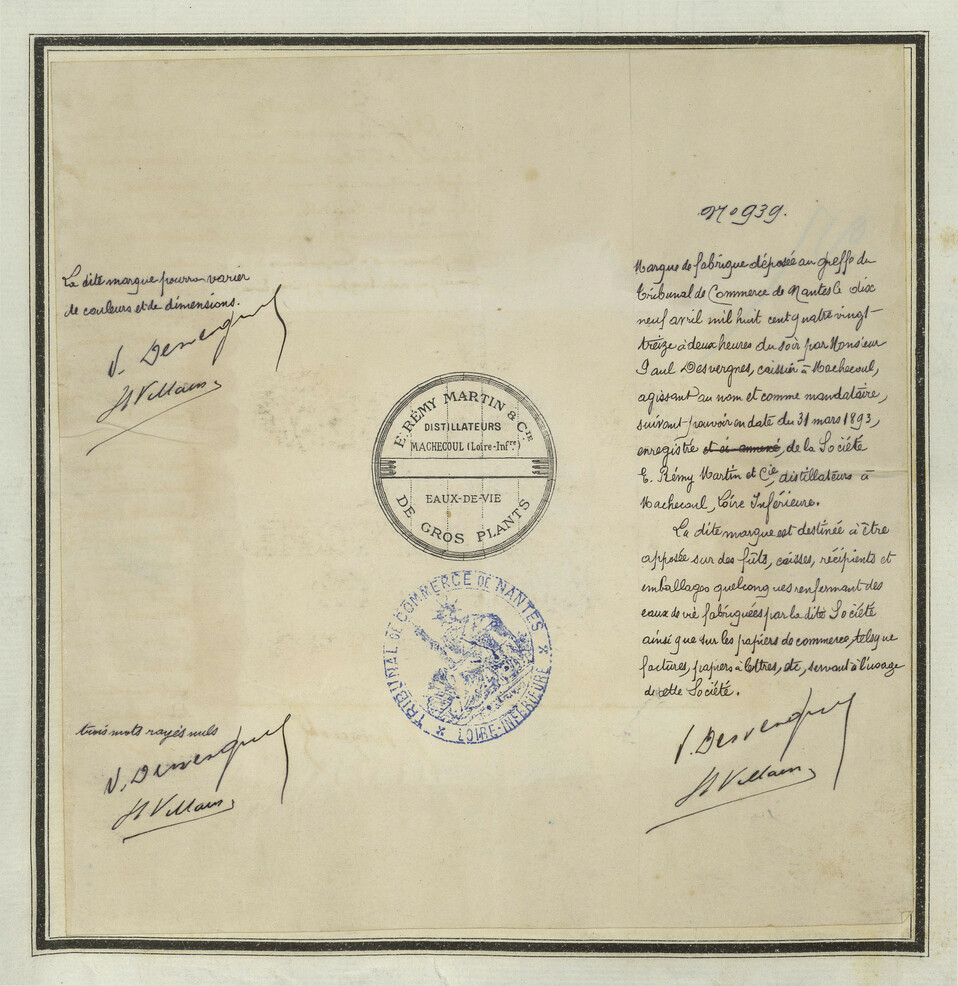 No 939.
Marque de fabrique déposée au greffe du
Tribunal de Commerce de Nantes le dix
neuf avril mil huit cent quatre vingt-
treize à deux heures du soir par Monsieur
Paul Desvergnes, caissier à Machecoul,
agissant au nom et comme mandataire,
suivant pouvoir en date du 31 mars 1893,
enregistré et ci annexé, de la Société
E. Rémy Martin et Cie, distillateurs à
Machecoul, Loire Inférieure.
La dite marque est destinée à être
apposée sur des fûts, caisses, récipients et
emballages quelconques renfermant des
eaux de vie fabriquées par la dite Société
ainsi que sur les papiers de commerce, tels que
factures, papiers à lettres, etc, servant à l'usage
de cette Société.
La dite marque pourra varier
de couleurs et de dimensions.
E. RÉMY MARTIN & CIE
DISTILLATEURS
MACHECOUL (Loire-Infre)
EAUX-DE-VIE
DE GROS PLANTS
TRIBUNAL DE COMMERCE DE NANTES
LOIRE-INFÉRIEURE
trois mots rayés nuls